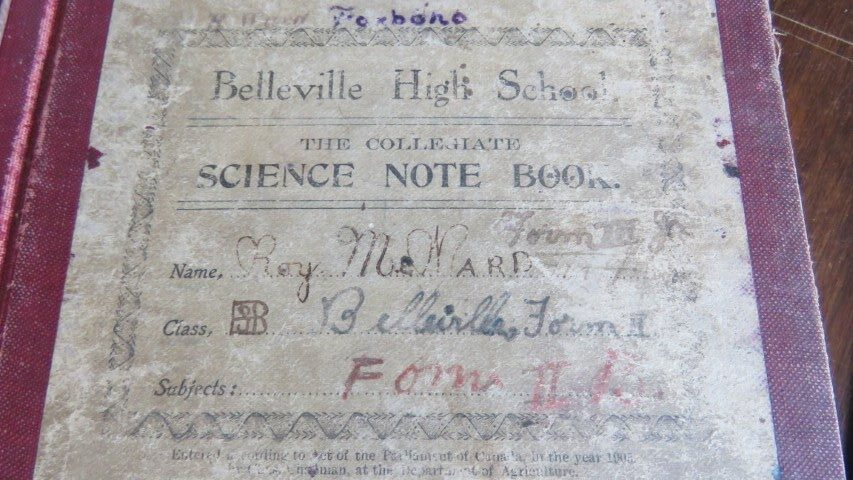 Foxboro
Belleville High School
THE COLLEGIATE
SCIENCE NOTE BOOK.
Form III Jr
Name, Roy McNARD
Class, Belleville, Form II
Subjects: Form II
Entered according to Act of the Parliament of Canada, in the year 1905,
at the Department of Agriculture.